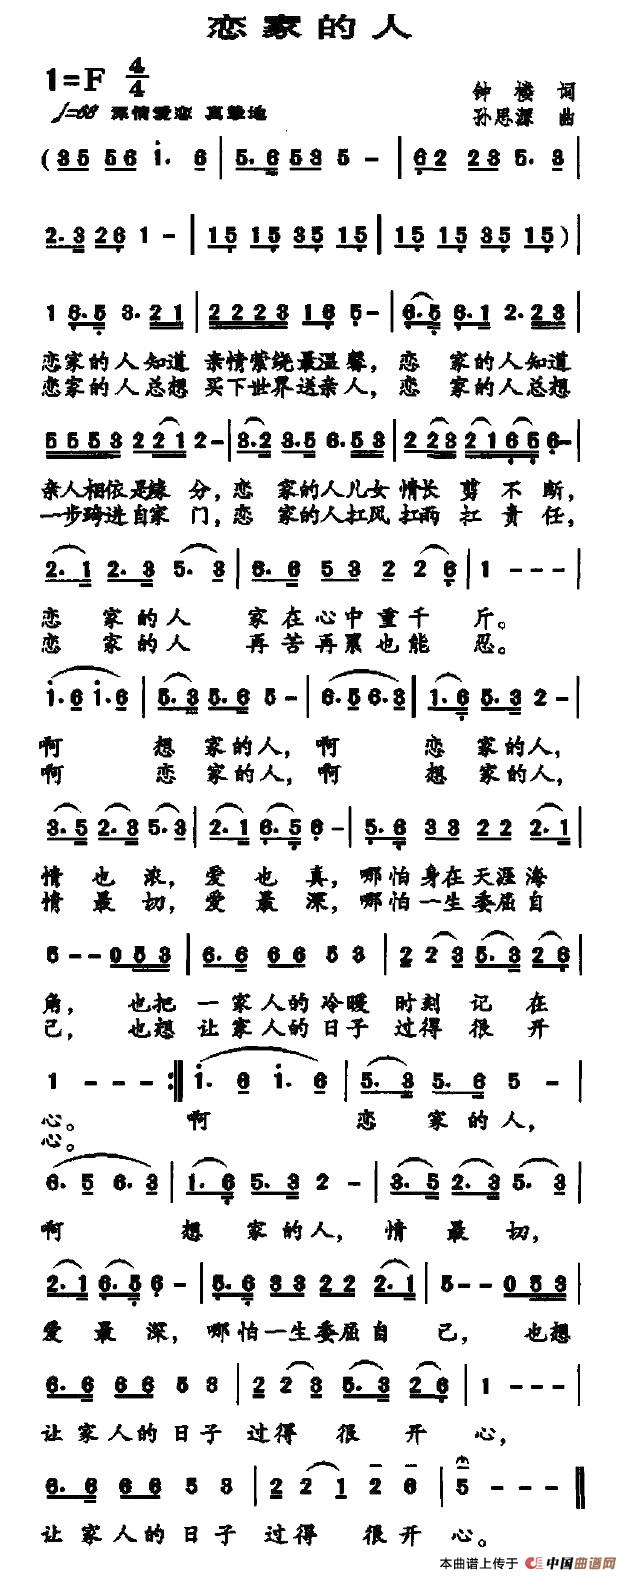 恋家的人
1=F 4/4
♩=68 深情爱恋 真挚地
钟 楼 词
孙思源 曲
(35 56 1. 6 | 5.6 53 5 - | 62 23 5. 3 |
2.3 26 1 - | 15 15 35 15 | 15 15 35 15) |
1 6.5 3. 21 | 2223 16 5 - | 6.5 6.1 2. 23 |
恋家的人知道 亲情萦绕最温馨，恋 家的人知道
恋家的人总想 买下世界送亲人，恋 家的人总想
5553 221 2 - | 3.2 3.5 6.53 | 223 2165 6 - |
亲人相依是缘 分，恋 家的人儿女 情长 剪 不 断，
一步跨进自家 门，恋 家的人扛风 扛雨 扛 责 任，
2.1 2.3 5.3 | 6.6 53 2 26 | 1 - - - |
恋 家的人 家在心中重千 斤。
恋 家的人 再苦再累也能 忍。
1.6 1.6 | 5.3 5.6 5 - | 6.5 6.3 | 1.6 5.3 2 - |
啊 想 家的人，啊 恋 家的人，
啊 恋 家的人，啊 想 家的人，
3.5 2.3 5.3 | 2.1 6.5 6 - | 5.6 33 22 2.1 |
情 也 浓，爱 也 真，哪怕身在天涯海
情 最 切，爱 最 深，哪怕一生委屈自
5 - - 0 53 | 6.6 66 53 | 2 23 5.3 26 |
角， 也把 一家人的冷暖 时刻 记 在
己， 也想 让家人的日子 过得 很 开
1 - - - :‖ 1. 6 1. 6 | 5.3 5.6 5 - |
心。 啊 恋 家的人，
心。
6.5 6.3 | 1.6 5.3 2 - | 3.5 2.3 5.3 |
啊 想 家的人， 情 最 切，
2.1 6.5 6 - | 5.6 33 22 2.1 | 5 - - 0 53 |
爱 最 深，哪怕一生委屈自 己， 也想
6.6 66 53 | 2 23 5.3 26 | 1 - - - |
让家人的日子 过得 很 开 心，
6.6 66 53 | 2 21 2 6 | 5 - - - ‖
让家人的日子 过得 很开 心。
本曲谱上传于 中国曲谱网